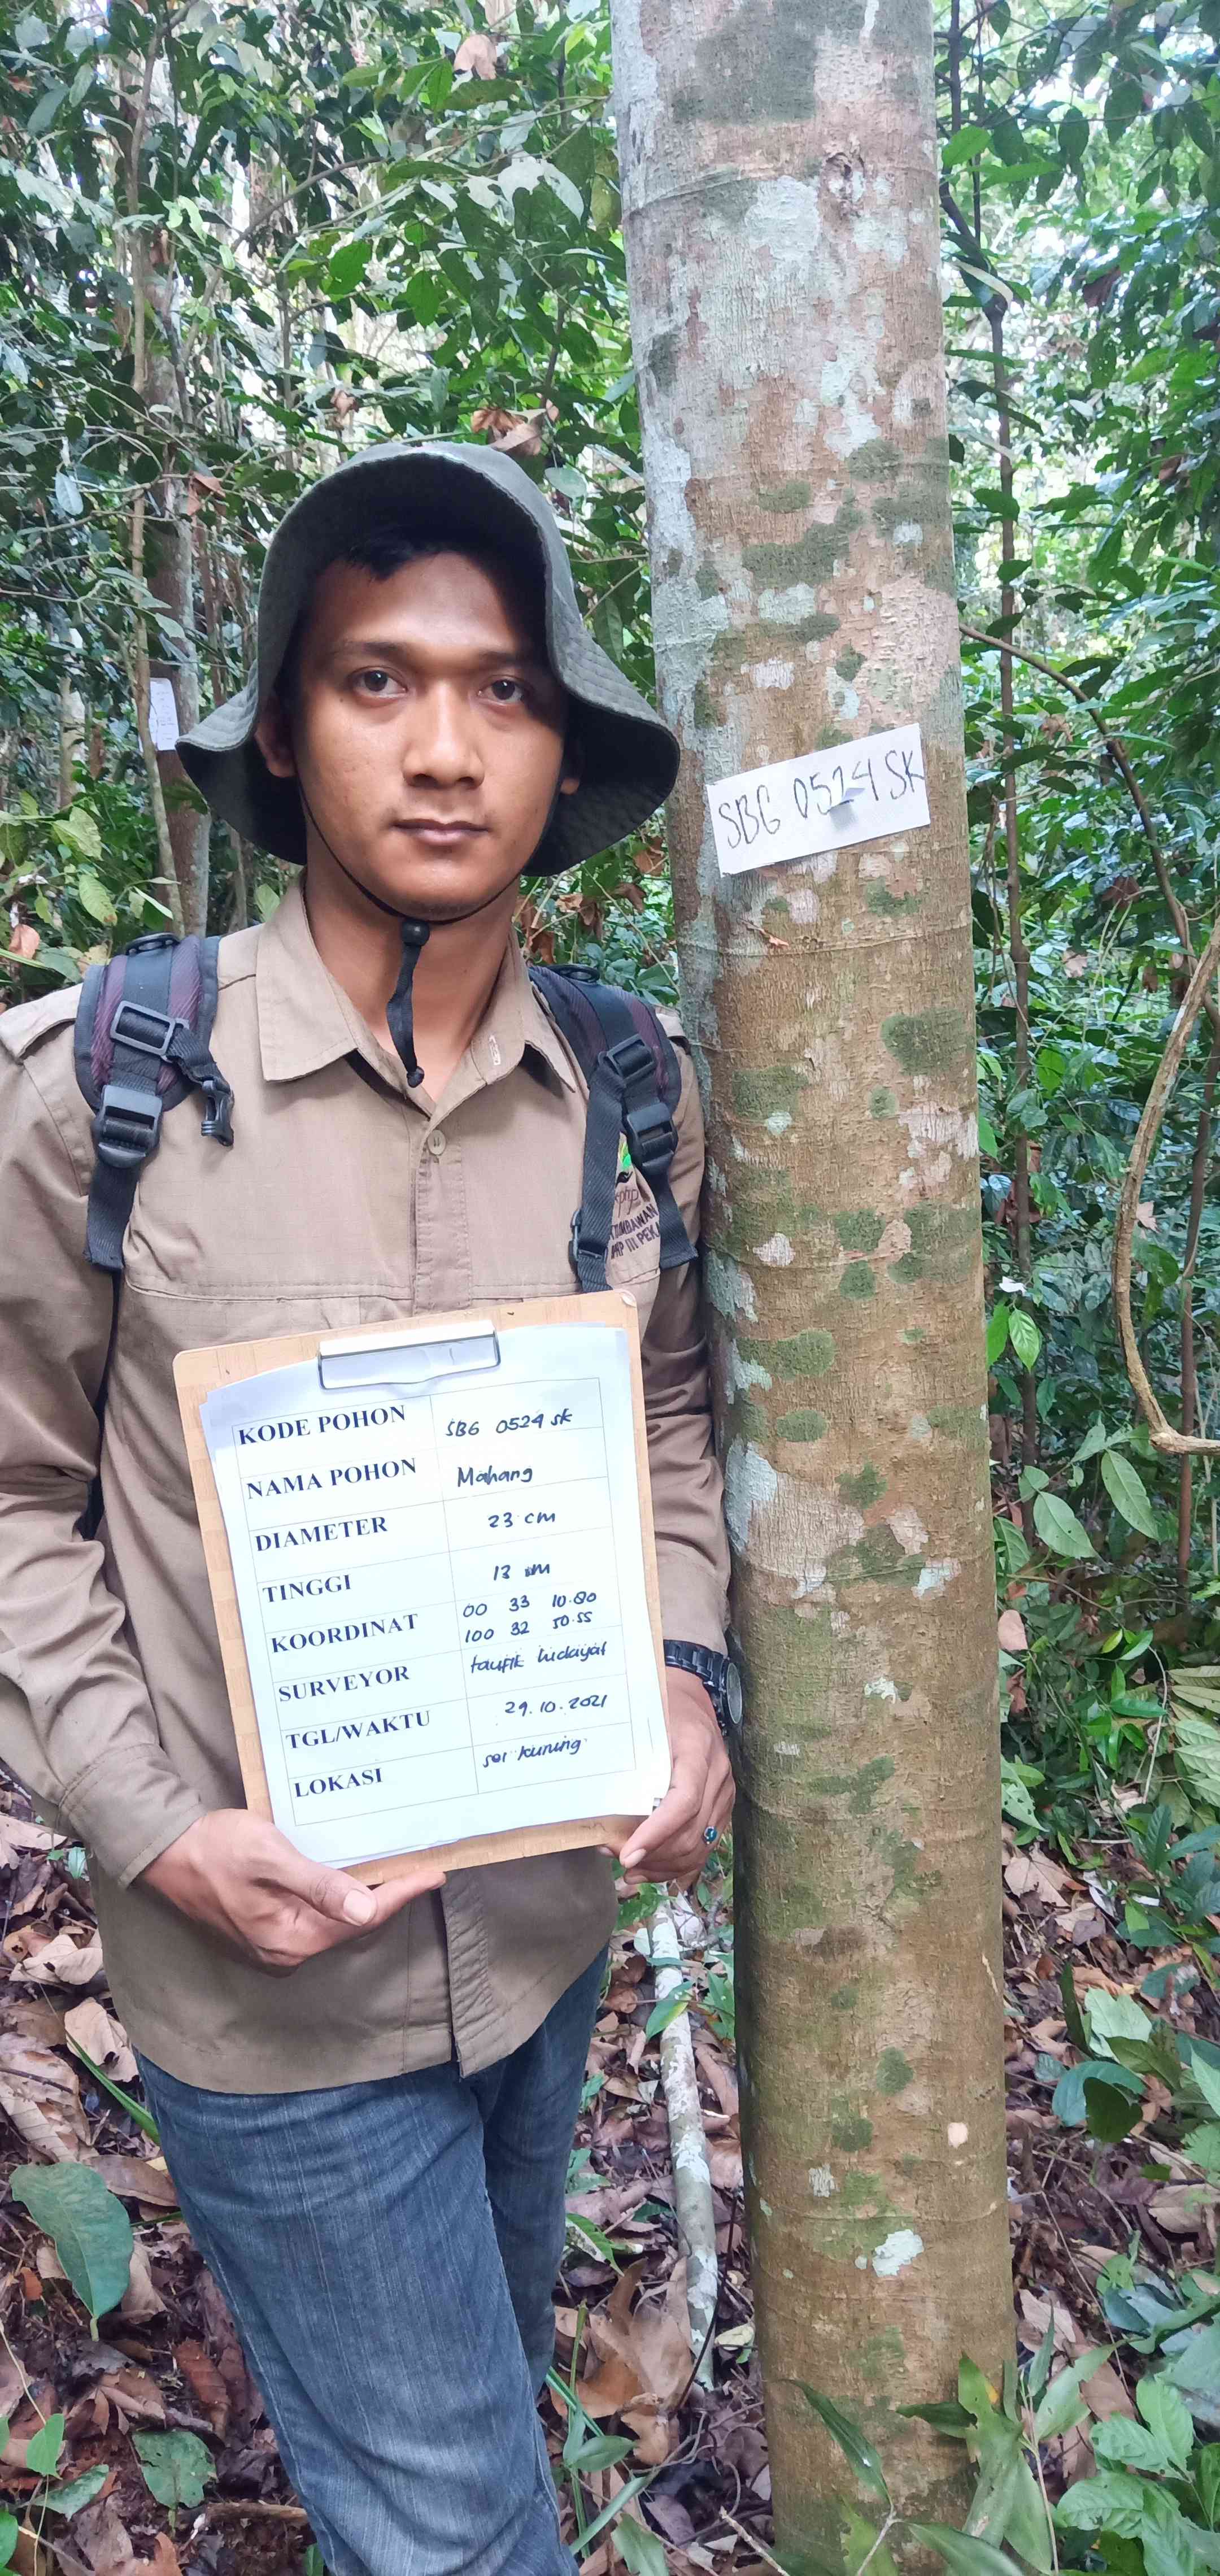 SBG 0524 SK
php
MBAWAN
KODE POHON SBG 0524 SK
NAMA POHON Mahang
DIAMETER 23 cm
TINGGI 13 m
KOORDINAT 00 33 10.80
100 32 50.55
SURVEYOR taufik hidayat
TGL/WAKTU 29.10.2021
LOKASI sei kuning